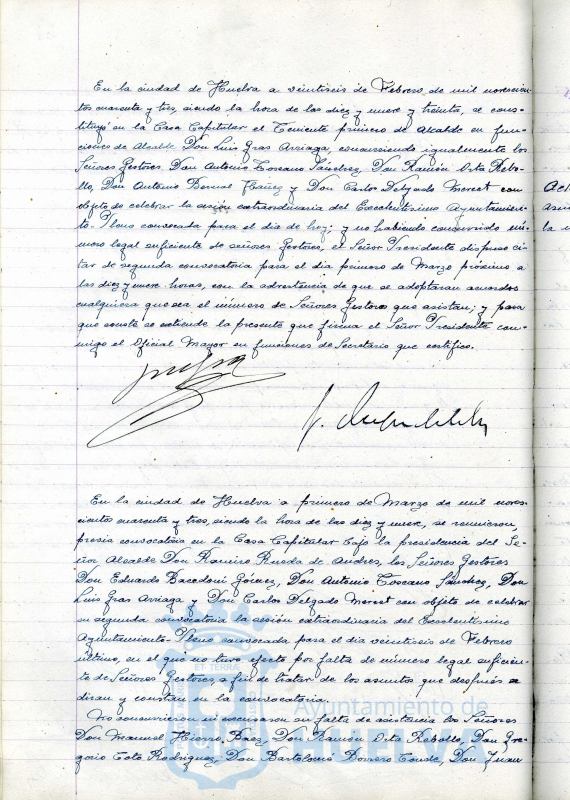 En la ciudad de Huelva a veintiseis de Febrero de mil novecien-
tos cuarenta y tres, siendo la hora de las diez y nueve y treinta, se cons-
tituyó en la Casa Capitular el Teniente primero de Alcalde en fun-
ciones de Alcalde Don Luis Gras Arriaga, concurriendo igualmente los
Señores Gestores Don Antonio Toscano Sánchez, Don Ramón Orta Rebo-
llo, Don Antonio Bernal Ibáñez y Don Carlos Delgado Mercet con
objeto de celebrar la sesión extraordinaria del Excelentisimo Ayuntamien-
to Pleno convocada para el dia de hoy; y no habiendo concurrido nú-
mero legal suficiente de señores Gestores, el Señor Presidente dispuso ci-
tar de segunda convocatoria para el dia primero de Marzo próximo a
las diez y nueve horas, con la advertencia de que se adoptaran acuerdos
cualquiera que sea el número de Señores Gestores que asistan; y para
que conste se extiende la presente que firma el Señor Presidente con-
migo el Oficial Mayor en funciones de Secretario que certifico.
En la ciudad de Huelva a primero de Marzo de mil nove-
cientos cuarenta y tres, siendo la hora de las diez y nueve, se reunieron,
previa convocatoria en la Casa Capitular bajo la presidencia del Se-
ñor Alcalde Don Ramiro Rueda de Andres, los Señores Gestores
Don Eduardo Bacedoni Gómez, Don Antonio Toscano Sánchez, Don
Luis Gras Arriaga y Don Carlos Delgado Mercet con objeto de celebrar
en segunda convocatoria la sesión extraordinaria del Excelentisimo
Ayuntamiento Pleno convocada para el dia veintiseis de Febrero
último, en el que no tuvo efecto por falta de número legal suficien-
te de Señores Gestores a fin de tratar de los asuntos que después se
diran y constan en la convocatoria.
No concurrieron ni excusaron su falta de asistencia los Señores
Don Manuel Hierro Báez, Don Ramón Orta Rebollo, Don Gre-
gorio Toto Rodriguez, Don Bartolomé Borrero Conde, Don Juan
Ayuntamiento de
HUELVA